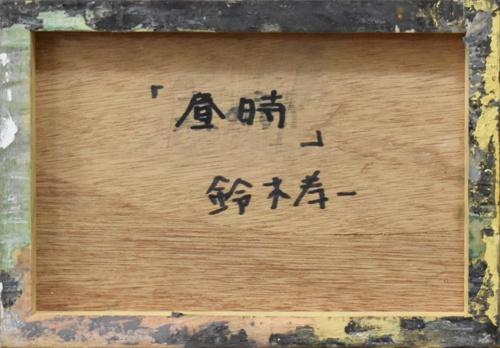 「昼時」
鈴木寿一